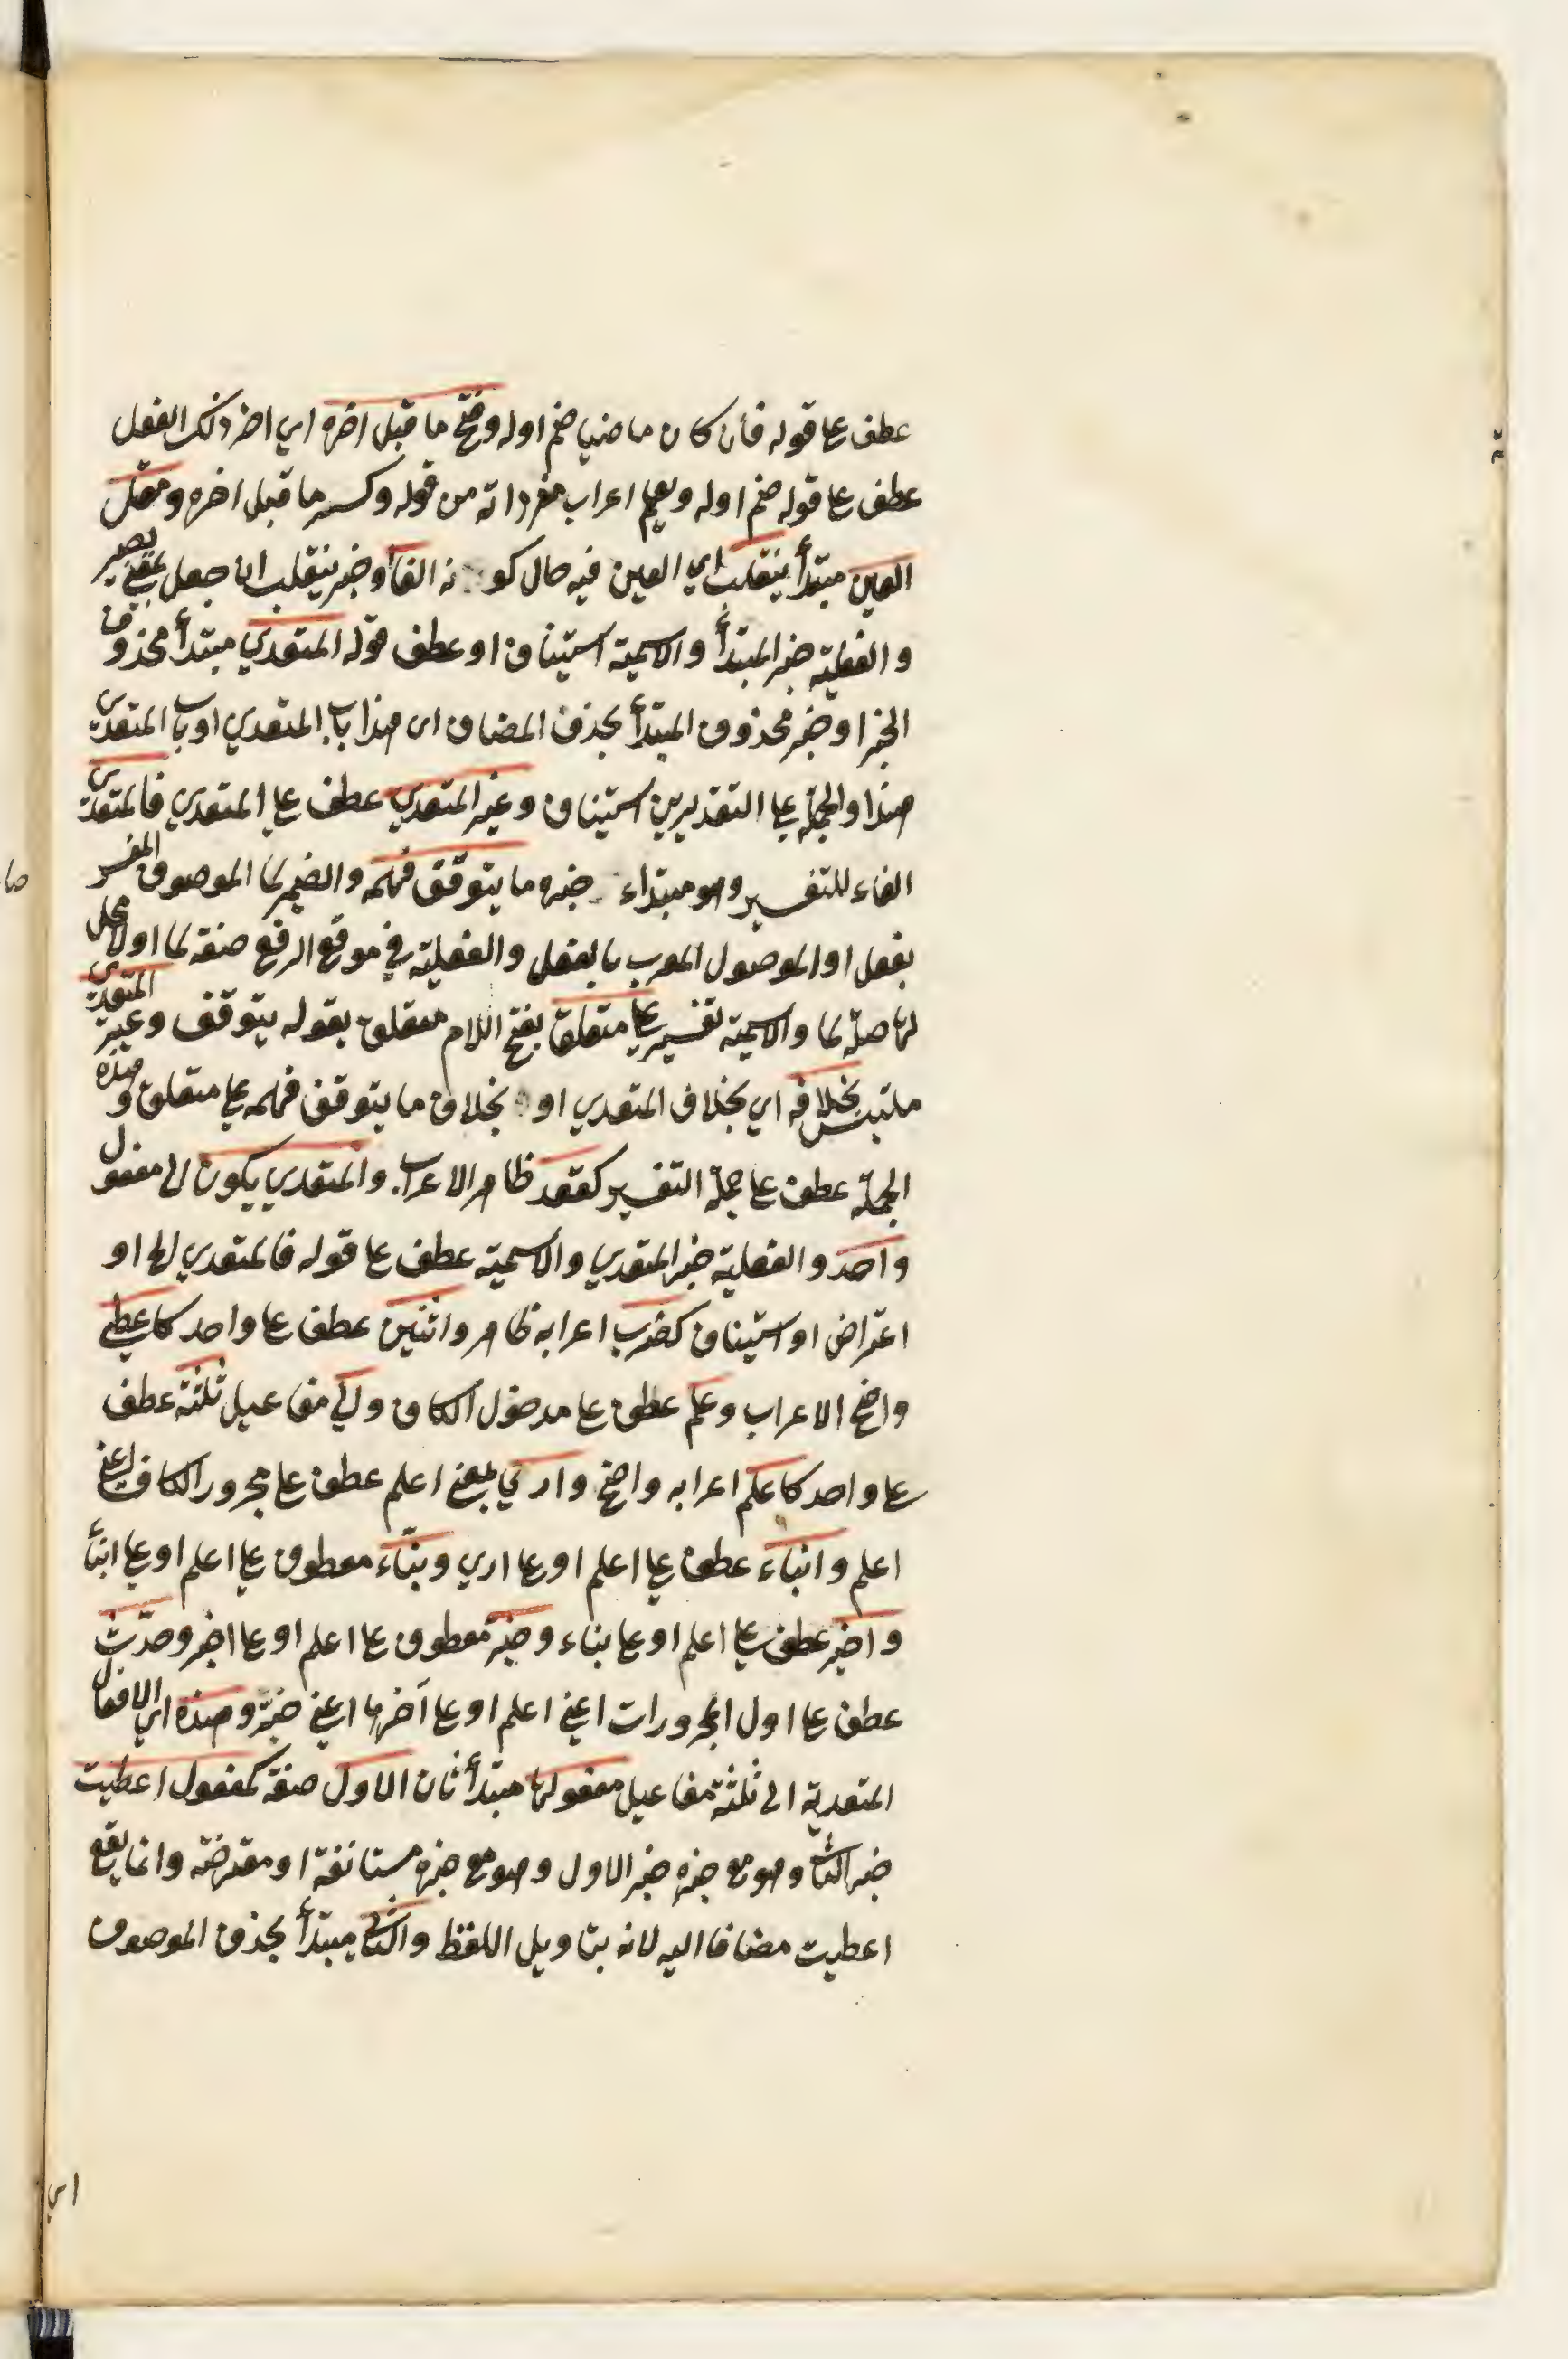 عطف على قوله فان كان ماضيا ضم اوله وفتح ما قبل اخره اي اخر ذلك الفعل
عطف على قوله ضم اوله ويعلم اعراب مفرداته من قوله وكسر ما قبل اخره ومعتل
العين مبتدأ ينقلب اي العين فيه حال كونه الفا وخبر ينقلب ان جعل بمعنى يصير
والفعلية خبر المبتدأ والاسمية استيناف او عطف قوله المتعدي مبتدأ محذوف
الخبر او خبر محذوف المبتدأ بحذف المضاف اى هذا باب المتعدي او باب المتعدي
هذا والجملة على التقديرين استيناف وغير المتعدي عطف على المتعدي فالمتعدي
الفاء للتفسير وهو مبتداء خبره ما يتوقف فهمه والضمير لما الموصوف المفسر
بفعل او الموصول المعرب بالفعل والفعلية في موقع الرفع صفة لما او لا محل
لها صلة لما والاسمية تفسير على متعلق بفتح اللام متعلق بقوله يتوقف وغير المتعدي
ملتبس بخلافه اي بخلاف المتعدي او بخلاف ما يتوقف فهمه على متعلق وهذه
الجملة عطف على جملة التفسير كقعد ظاهر الاعراب والمتعدي يكون الى مفعول
واحد والفعلية خبر المتعدي والاسمية عطف على قوله فالمتعدي الخ او
اعتراض او استيناف كضرب اعرابه ظاهر واثنين عطف على واحد كاعطى
واضح الاعراب وعلم عطف على مدخول الكاف والى مفاعيل ثلثة عطف
على واحد كاعلم اعرابه واضح وارى بمعنى اعلم عطف على مجرور الكاف اعني
اعلم وانباء عطف على اعلم او على اري ونباء معطوف على اعلم او على انبأ
واخبر عطف على اعلم او على نباء وخبر معطوف على اعلم او على اخبر وحدّث
عطف على اول المجرورات اعني اعلم او على آخرها اعني خبّر وهذه اي الافعال
المتعدية الى ثلثة مفاعيل مفعولها مبتدأ ثان الاول صفة كمفعول اعطيت
خبر الثاني وهو مع خبره خبر الاول وهو مع خبره مستانفة او معترضة وانما يقع
اعطيت مضافا اليه لانه بتاويل اللفظ والثاني مبتدأ بحذف الموصوف
اي